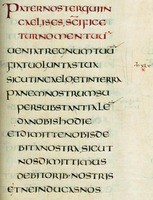 PATERNOSTERQUIIN
CAELISES, SCIFICE
TURNOMENTUU
UENIATREGNUMTUU
FIATUOLUNTASTUA
SICUTINCAELOETINTERRA
PANEMNOSTRUMSU
PERSUBSTANTIALE
DANOBISHODIE
ETDIMITTENOBISDE
BITANOSTRA, SICUT
NOSDIMITTIMUS
DEBITORIB·NOSTRIS
ETNEINDUCASNOS